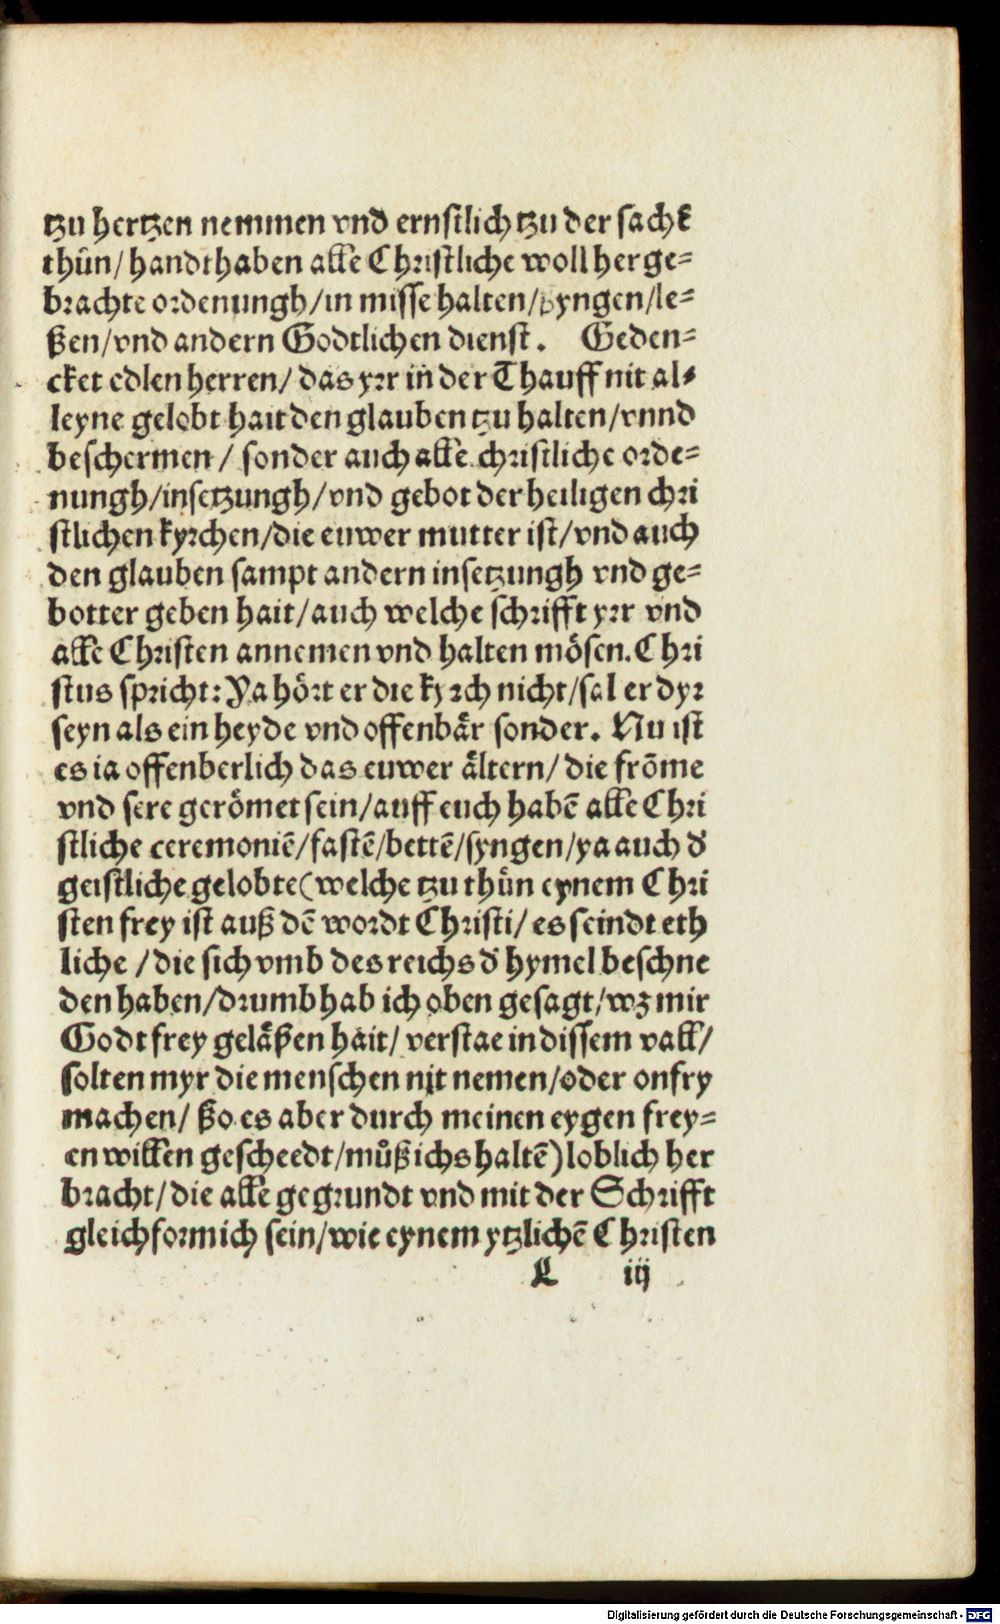 tzu hertzen nemmen vnd ernstlich tzu der sache
thůn/ handthaben alle Christliche woll herge⸗
brachte ordenungh/in misse halten/syngen/le⸗
ßen/vnd andern Godtlichen dienst. Geden⸗
cket edlen herren/ das yrr in der Thauff nit al⸗
leyne gelobt hait den glauben tzu halten/vnnd
beschermen/ sonder auch alle christliche orde⸗
nungh/insetzungh/vnd gebot der heiligen chri
stlichen kyrchen/die euwer mutter ist/vnd auch
den glauben sampt andern insetzungh vnd ge⸗
botter geben hait/auch welche schrifft yrr vnd
alle Christen annemen vnd halten mösen. Chri
stus spricht: Ya hört er die kyrch nicht/sal er dyr
seyn als ein heyde vnd offenbär sonder. Nu ist
es ia offenberlich das euwer ältern/ die frōme
vnd sere gerömet sein/auff euch habē alle Chri
stliche ceremoniē/fastē/bettē/syngen/ya auch d̕
geistliche gelobte(welche tzu thůn eynem Chri
sten frey ist auß dē wordt Christi/ es seindt eth
liche /die sich vmb des reichs d̕ hymel beschne
den haben/drumb hab ich oben gesagt/wz mir
Godt frey geläßen hait/ verstae in dissem vall/
solten myr die menschen nit nemen/oder onfry
machen/ ßo es aber durch meinen eygen frey⸗
en willen gescheedt/můß ichs haltē) loblich her
bracht/die alle gegrundt vnd mit der Schrifft
gleichformich sein/wie eynem ytzlichē Christen
L iij
Digitalisierung gefördert durch die Deutsche Forschungsgemeinschaft - DFG